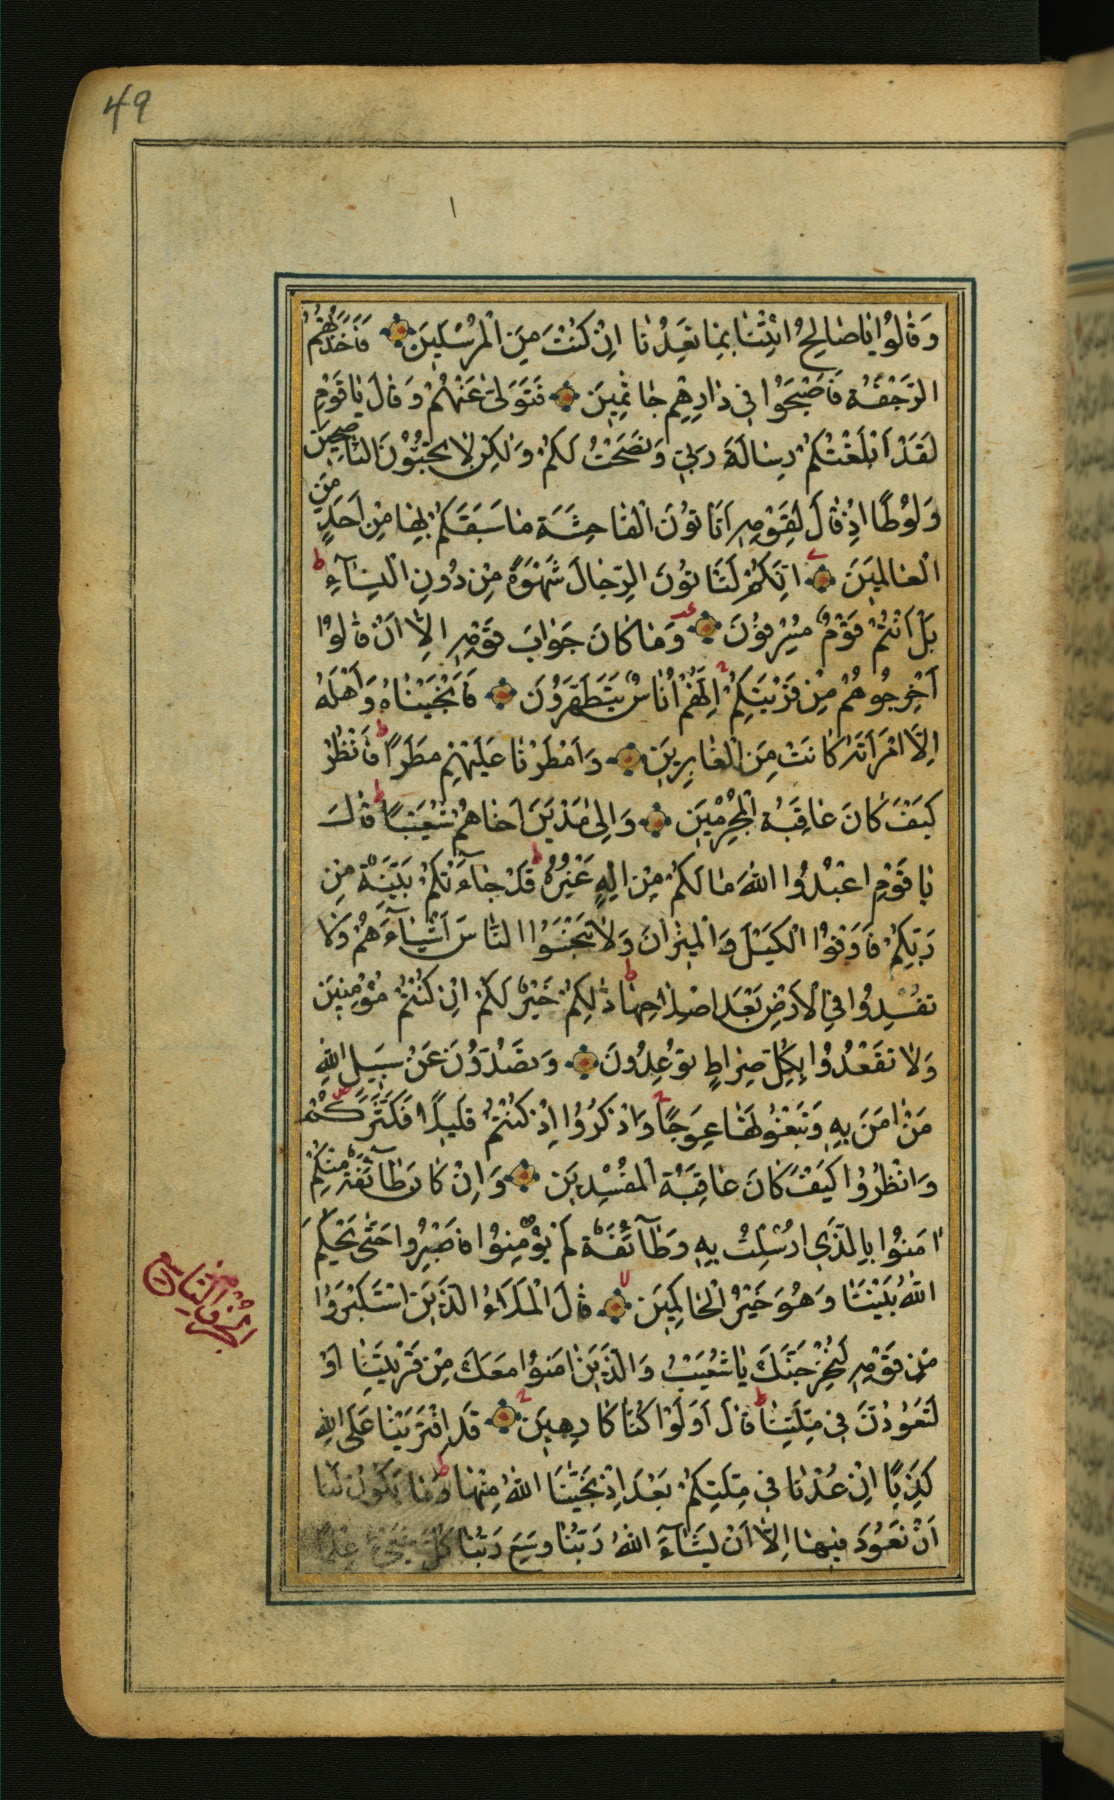 49
وَقٰالُوا يٰا صٰالِحُ ائْتِنٰا بِمٰا تَعِدُنٰا اِنْ كُنْتَ مِنَ الْمُرْسَلٖينَ فَاَخَذَتْهُمُ
الرَّجْفَةُ فَاَصْبَحُوا فٖي دٰارِهِمْ جٰاثِمٖينَ فَتَوَلّٰى عَنْهُمْ وَقٰالَ يٰا قَوْمِ
لَقَدْ اَبْلَغْتُكُمْ رِسٰالَةَ رَبّٖي وَنَصَحْتُ لَكُمْ وَلٰكِنْ لٰا تُحِبُّونَ النّٰاصِحٖينَ
وَلُوطًا اِذْ قٰالَ لِقَوْمِهٖ اَتَأْتُونَ الْفٰاحِشَةَ مٰا سَبَقَكُمْ بِهٰا مِنْ اَحَدٍ مِنَ
الْعٰالَمٖينَ اَئِنَّكُمْ لَتَأْتُونَ الرِّجٰالَ شَهْوَةً مِنْ دُونِ النِّسٰآءِ ط
بَلْ اَنْتُمْ قَوْمٌ مُسْرِفُونَ وَمٰا كٰانَ جَوٰابَ قَوْمِهٖ اِلّٰا اَنْ قٰالُوا
اَخْرِجُوهُمْ مِنْ قَرْيَتِكُمْ اِنَّهُمْ اُنٰاسٌ يَتَطَهَّرُونَ فَاَنْجَيْنٰاهُ وَاَهْلَهُ
اِلَّا امْرَاَتَهُ كٰانَتْ مِنَ الْغٰابِرٖينَ وَاَمْطَرْنٰا عَلَيْهِمْ مَطَرًا ط فَانْظُرْ
كَيْفَ كٰانَ عٰاقِبَةُ الْمُجْرِمٖينَ وَاِلىٰ مَدْيَنَ اَخٰاهُمْ شُعَيْبًا ط قٰالَ
يٰا قَوْمِ اعْبُدُوا اللهَ مٰا لَكُمْ مِنْ اِلٰهٍ غَيْرُهُ ط قَدْ جٰآءَتْكُمْ بَيِّنَةٌ مِنْ
رَبِّكُمْ فَاَوْفُوا الْكَيْلَ وَالْمٖيزٰانَ وَلٰا تَبْخَسُوا النّٰاسَ اَشْيٰآءَهُمْ وَلٰا
تُفْسِدُوا فِي الْاَرْضِ بَعْدَ اِصْلٰاحِهٰا ط ذٰلِكُمْ خَيْرٌ لَكُمْ اِنْ كُنْتُمْ مُؤْمِنٖينَ
وَلٰا تَقْعُدُوا بِكُلِّ صِرٰاطٍ تُوعِدُونَ وَتَصُدُّونَ عَنْ سَبٖيلِ اللهِ
مَنْ اٰمَنَ بِهٖ وَتَبْغُونَهٰا عِوَجًا وَاذْكُرُوا اِذْ كُنْتُمْ قَلٖيلًا فَكَثَّرَكُمْ
وَانْظُرُوا كَيْفَ كٰانَ عٰاقِبَةُ الْمُفْسِدٖينَ وَاِنْ كٰانَ طٰآئِفَةٌ مِنْكُمْ
اٰمَنُوا بِالَّذٖي اُرْسِلْتُ بِهٖ وَطٰآئِفَةٌ لَمْ يُؤْمِنُوا فَاصْبِرُوا حَتّٰى يَحْكُمَ
اللهُ بَيْنَنٰا وَهُوَ خَيْرُ الْحٰاكِمٖينَ قٰالَ الْمَلَاُ الَّذٖينَ اسْتَكْبَرُوا
الجزؤ التاسع
مِنْ قَوْمِهٖ لَنُخْرِجَنَّكَ يٰا شُعَيْبُ وَالَّذٖينَ اٰمَنُوا مَعَكَ مِنْ قَرْيَتِنٰا اَوْ
لَتَعُودُنَّ فٖي مِلَّتِنٰا ط قٰالَ اَوَلَوْ كُنّٰا كٰارِهٖينَ قَدِ افْتَرَيْنٰا عَلَى اللهِ
كَذِبًا اِنْ عُدْنٰا فٖي مِلَّتِكُمْ بَعْدَ اِذْ نَجّٰينَا اللهُ مِنْهٰا ط وَمٰا يَكُونُ لَنٰا
اَنْ نَعُودَ فٖيهٰا اِلّٰا اَنْ يَشٰآءَ اللهُ رَبُّنٰا وَسِعَ رَبُّنٰا كُلَّ شَيْءٍ عِلْمًا